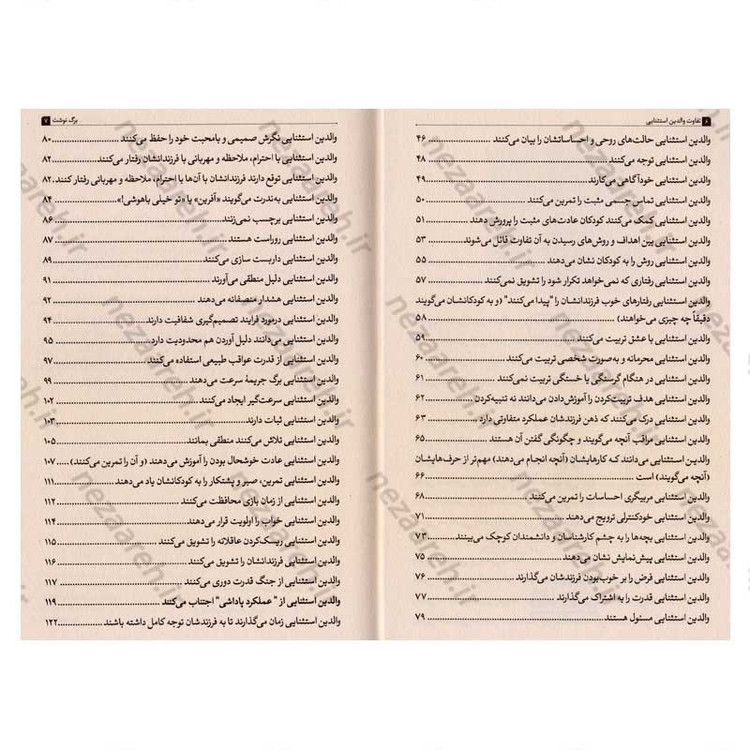 ۶ تفاوت والدین استثنایی
والدین استثنایی حالت‌های روحی و احساساتشان را بیان می‌کنند ۴۶
والدین استثنایی توجه می‌کنند ۴۸
والدین استثنایی خودآگاهی می‌کارند ۴۹
والدین استثنایی تماس جسمی مثبت را تمرین می‌کنند ۵۰
والدین استثنایی کمک می‌کنند کودکان عادت‌های مثبت را پرورش دهند ۵۱
والدین استثنایی بین اهداف و روش‌های رسیدن به آن تفاوت قائل می‌شوند ۵۳
والدین استثنایی روش را به کودکان نشان می‌دهند ۵۵
والدین استثنایی رفتاری که نمی‌خواهد تکرار شود را تشویق نمی‌کنند ۵۷
والدین استثنایی رفتارهای خوب فرزندانشان را "پیدا می‌کنند" (و به کودکانشان می‌گویند
دقیقاً چه چیزی می‌خواهند) ۵۸
والدین استثنایی با عشق تربیت می‌کنند ۵۹
والدین استثنایی محرمانه و به‌صورت شخصی تربیت می‌کنند ۶۰
والدین استثنایی در هنگام گرسنگی یا خستگی تربیت نمی‌کنند ۶۱
والدین استثنایی هدف تربیت‌کردن را آموزش‌دادن می‌دانند نه تنبیه‌کردن ۶۲
والدین استثنایی درک می‌کنند که ذهن فرزندشان عملکرد متفاوتی دارد ۶۳
والدین استثنایی مراقب آنچه می‌گویند و چگونگی گفتن آن هستند ۶۵
والدین استثنایی می‌دانند که کارهایشان (آنچه انجام می‌دهند) مهم‌تر از حرف‌هایشان
(آنچه می‌گویند) است ۶۶
والدین استثنایی مربیگری احساسات را تمرین می‌کنند ۶۸
والدین استثنایی خودکنترلی ترویج می‌دهند ۷۱
والدین استثنایی بچه‌ها را به چشم کارشناسان و دانشمندان کوچک می‌بینند ۷۳
والدین استثنایی پیش‌نمایش نشان می‌دهند ۷۵
والدین استثنایی فرض را بر خوب‌بودن فرزندشان می‌گذارند ۷۶
والدین استثنایی قدرت را به اشتراک می‌گذارند ۷۷
والدین استثنایی مسئول هستند ۷۹
برگ نوشت ۷
والدین استثنایی نگرش صمیمی و بامحبت خود را حفظ می‌کنند ۸۰
والدین استثنایی با احترام، ملاحظه و مهربانی با فرزندانشان رفتار می‌کنند ۸۲
والدین استثنایی توقع دارند فرزندانشان با آن‌ها با احترام، ملاحظه و مهربانی رفتار کنند ۸۲
والدین استثنایی به‌ندرت می‌گویند «آفرین» یا «تو خیلی باهوشی!» ۸۴
والدین استثنایی برچسب نمی‌زنند ۸۶
والدین استثنایی روراست هستند ۸۷
والدین استثنایی داربست سازی می‌کنند ۸۹
والدین استثنایی دلیل منطقی می‌آورند ۹۱
والدین استثنایی هشدار منصفانه می‌دهند ۹۲
والدین استثنایی درمورد فرایند تصمیم‌گیری شفافیت دارند ۹۴
والدین استثنایی می‌دانند دلیل آوردن هم محدودیت دارد ۹۵
والدین استثنایی از قدرت عواقب طبیعی استفاده می‌کنند ۹۷
والدین استثنایی برگ جریمهٔ سرعت می‌دهند ۹۹
والدین استثنایی سرعت‌گیر ایجاد می‌کنند ۱۰۲
والدین استثنایی ثبات دارند ۱۰۳
والدین استثنایی تلاش می‌کنند منطقی بمانند ۱۰۵
والدین استثنایی عادت خوشحال بودن را آموزش می‌دهند (و آن را تمرین می‌کنند) ۱۰۷
والدین استثنایی تمرین، صبر و پشتکار را به کودکانشان یاد می‌دهند ۱۱۱
والدین استثنایی از زمان بازی محافظت می‌کنند ۱۱۲
والدین استثنایی خواب را اولویت قرار می‌دهند ۱۱۴
والدین استثنایی ریسک‌کردن عاقلانه را تشویق می‌کنند ۱۱۵
والدین استثنایی فرزندانشان را تشویق می‌کنند ۱۱۶
والدین استثنایی از جنگ قدرت دوری می‌کنند ۱۱۷
والدین استثنایی از "عملکرد پاداشی" اجتناب می‌کنند ۱۱۹
والدین استثنایی زمان می‌گذارند تا به فرزندشان توجه کامل داشته باشند ۱۲۲
nezaareh.ir